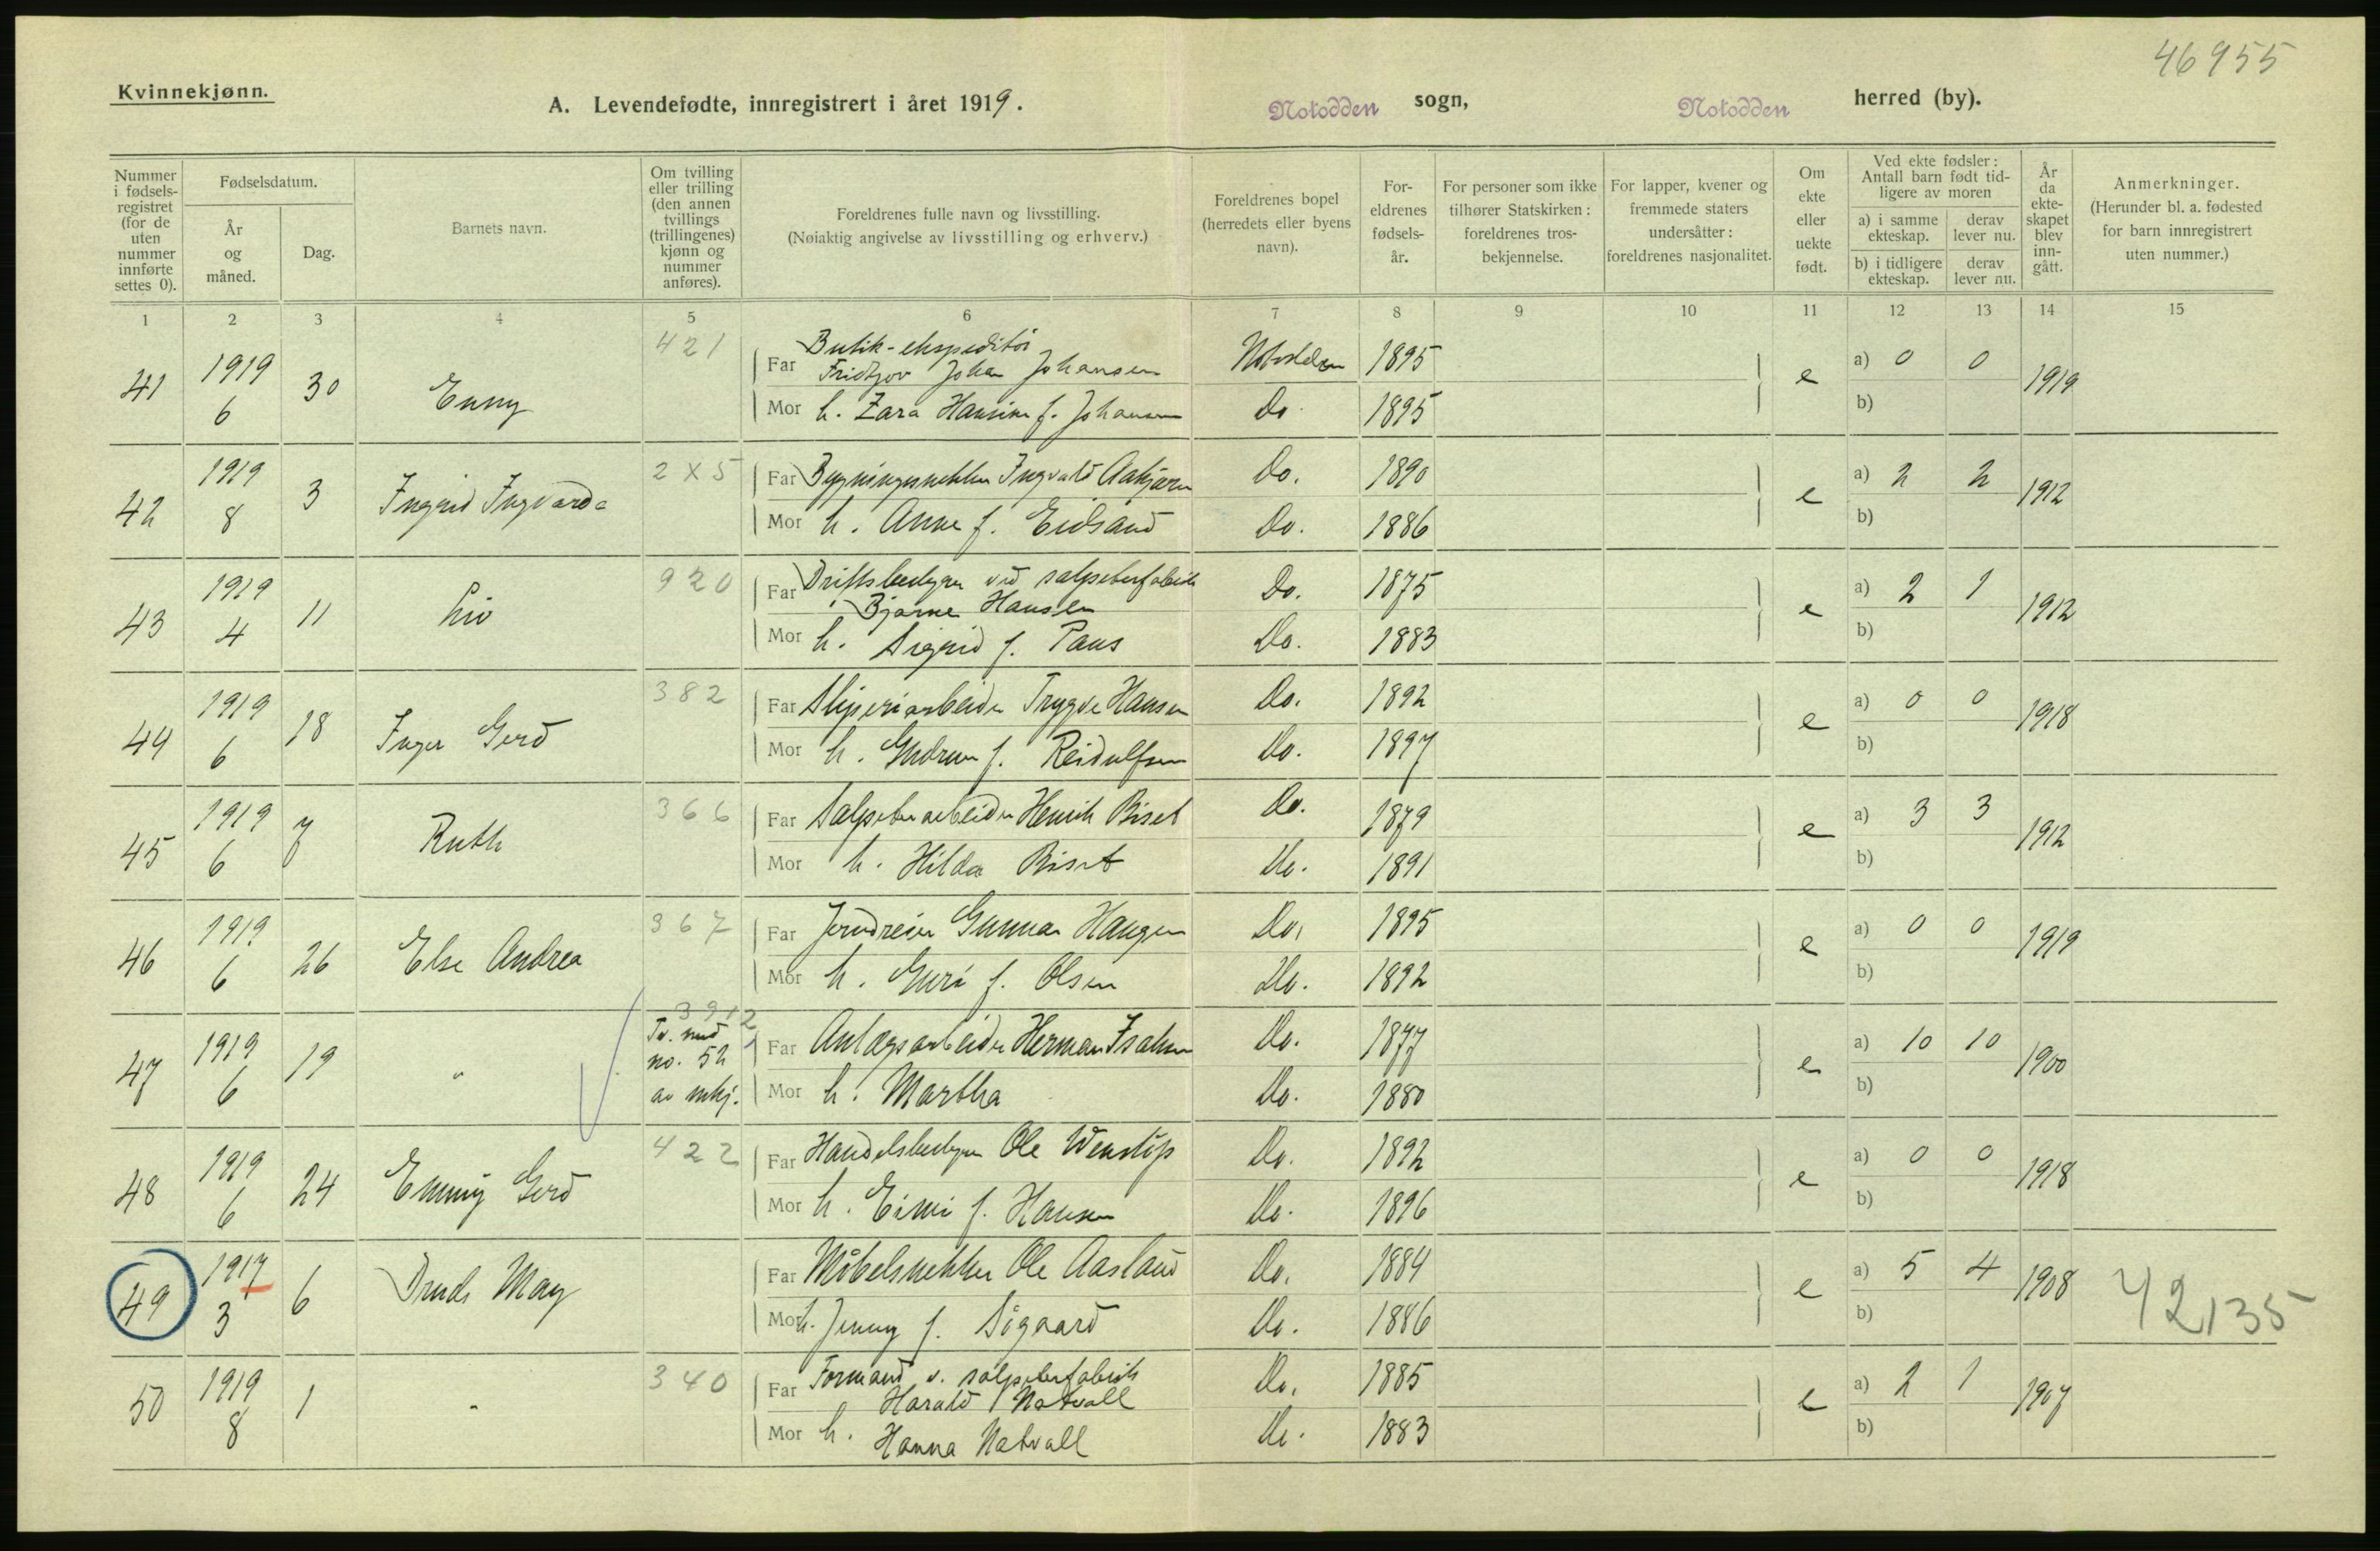 46955
Kvinnekjønn.
A. Levendefødte, innregistrert i året 1919. Notodden sogn, Notodden herred (by).
Nummer i fødselsregistret (for de uten nummer innførte settes 0).
Fødselsdatum.
År og måned.
Dag.
Barnets navn.
Om tvilling eller trilling (den annen tvillings (trillingenes) kjønn og nummer anføres).
Foreldrenes fulle navn og livsstilling.
(Nøiaktig angivelse av livsstilling og erhverv.)
Foreldrenes bopel (herredets eller byens navn).
Foreldrenes fødselsår.
For personer som ikke tilhører Statskirken: foreldrenes trosbekjennelse.
For lapper, kvener og fremmede staters undersåtter: foreldrenes nasjonalitet.
Om ekte eller uekte født.
Ved ekte fødsler: Antall barn født tidligere av moren
a) i samme ekteskap. derav lever nu.
b) i tidligere ekteskap. derav lever nu.
År da ekteskapet blev inngått.
Anmerkninger.
(Herunder bl. a. fødested for barn innregistrert uten nummer.)
1 2 3 4 5 6 7 8 9 10 11 12 13 14 15
41 1919 6 30 Enny 421
Far Butik-ekspeditør Fridtjov Johan Johansen Notodden 1895 e a) 0 0 1919
Mor h. Zara Hansine f. Johansen Do 1895 b)
42 1919 8 3 Ingrid Ingvarda 2 X 5
Far Bygningssnekker Ingvald Do. 1890 e a) 2 2 1912
Mor h. Anne f. Eidsand Do. 1886 b)
43 1919 4 11 Liv 920
Far Driftsbestyrer ved salpeterfabrik Bjarne Hansen Do. 1875 e a) 2 1 1912
Mor h. Sigrid f. Paus Do. 1883 b)
44 1919 6 18 Inger Gerd 382
Far Sliperiarbeider Trygve Hansen Do. 1892 e a) 0 0 1918
Mor h. Gudrun f. Reidulfsen Do. 1897 b)
45 1919 6 7 Ruth 366
Far Salpeterarbeider Henrik Biset Do. 1879 e a) 3 3 1912
Mor h. Hilda Biset Do. 1891 b)
46 1919 6 26 Else Andrea 367
Far Jerndreier Gunnar Haugen Do. 1895 e a) 0 0 1919
Mor h. Guri f. Olsen Do. 1892 b)
47 1919 6 19 " 3912 Tv. med no. 52 av mkj.
Far Anlægsarbeider Herman Isaksen Do. 1877 e a) 10 10 1900
Mor h. Martha Do. 1880 b)
48 1919 6 24 Emmy Gerd 422
Far Handelsbestyrer Ole Wenstøp Do. 1892 e a) 0 0 1918
Mor h. Eimi f. Hansen Do. 1896 b)
49 1917 3 6 May
Far Møbelsnekker Ole Aasland Do. 1884 e a) 5 4 1908 42135
Mor h. Jenny f. Søgaard Do. 1886 b)
50 1919 8 1 " 340
Far Formand v. salpeterfabrik Harald Natvall Do. 1885 e a) 2 1 1907
Mor h. Hanna Natvall Do. 1883 b)